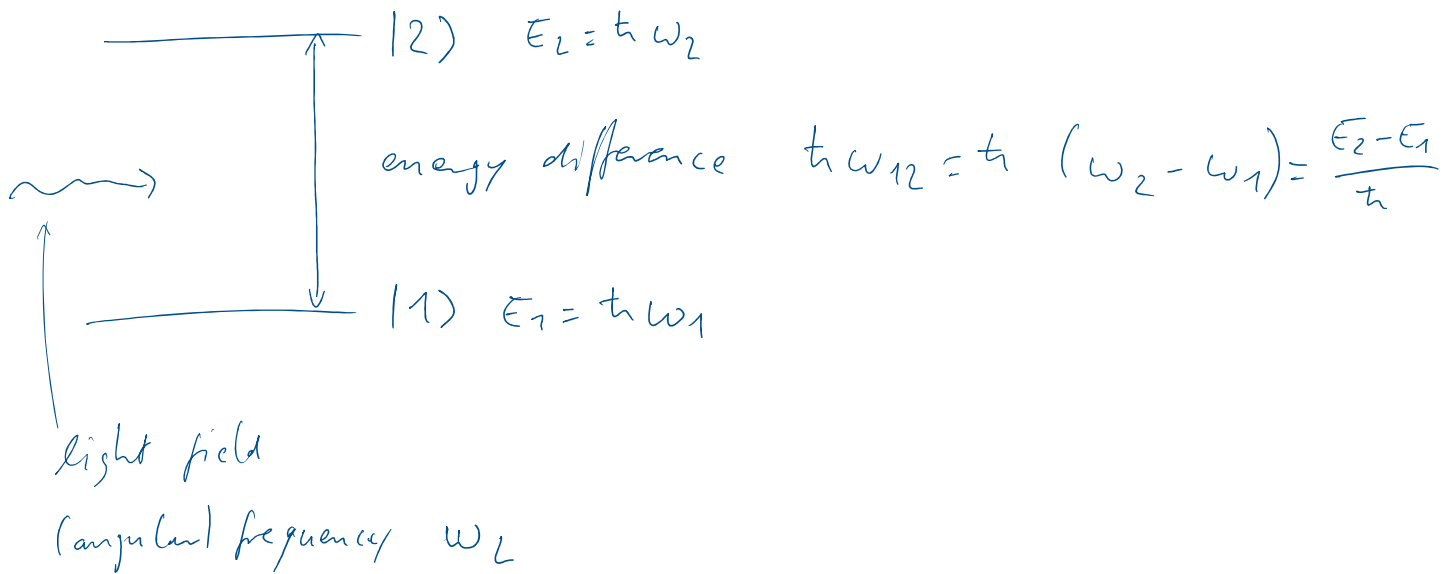 |2⟩ E₂ = ħω₂
energy difference ħω₁₂ = ħ (ω₂ - ω₁) = (E₂ - E₁)/ħ
|1⟩ E₁ = ħω₁
light field
(angular) frequency ω_L